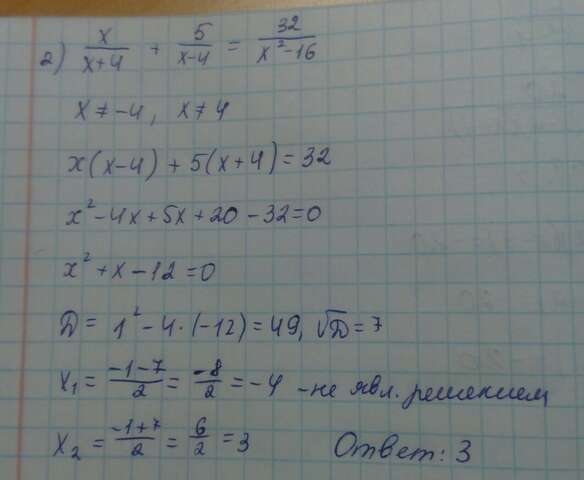 2) x/(x+4) + 5/(x-4) = 32/(x²-16)
x ≠ -4, x ≠ 4
x(x-4) + 5(x+4) = 32
x² - 4x + 5x + 20 - 32 = 0
x² + x - 12 = 0
D = 1² - 4·(-12) = 49, √D = 7
x₁ = (-1-7)/2 = -8/2 = -4 - не явл. решением
x₂ = (-1+7)/2 = 6/2 = 3 Ответ: 3